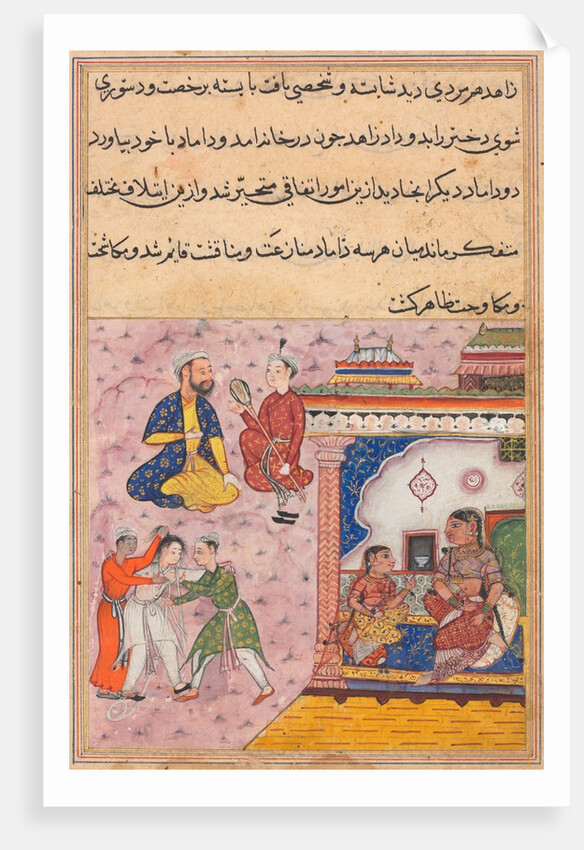 زاهد هر مردي ديد شابسته و شخصي يافت بابسته برخصت و دستوري
شوي دختر را بدو داد زاهد چون در خانه آمد و داماد با خود بياورد
دو داماد ديكر انجا ديد از ين امور اتفاقي متحير شد و از ين ايتلاف مختلف
متفكر ماند ميان هر سه داماد منازعت و مناقشت قايم شد و مكاشحت
و مكاوحت ظاهر كشت